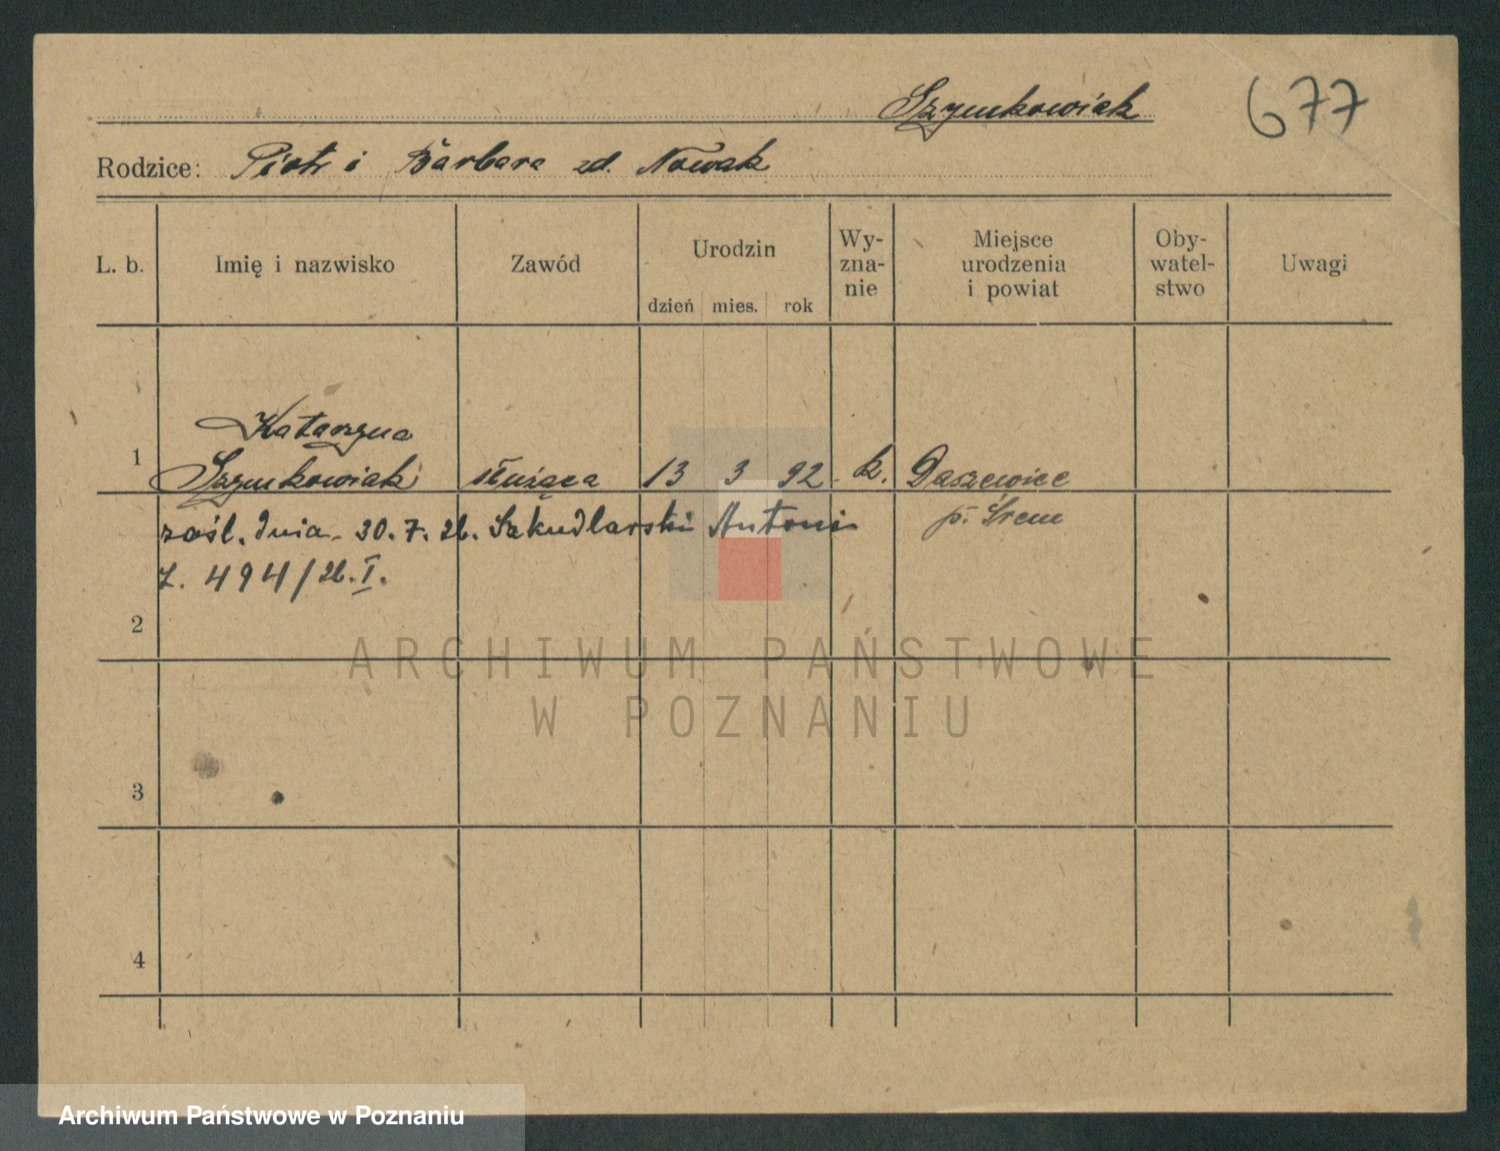 Szymkowiak
677
Rodzice: Piotr i Barbara zd. Nowak
L. b.
Imię i nazwisko
Zawód
Urodzin
dzień mies. rok
Wy-
zna-
nie
Miejsce
urodzenia
i powiat
Oby-
watel-
stwo
Uwagi
Katarzyna
1 Szymkowiak służąca 13 3 92 k. Daszewice
p. Śrem
zaśl. dnia 30.7.26. Szkudlarski Antoni
L. 494/26.I.
2
3
4
ARCHIWUM PAŃSTWOWE
W POZNANIU
Archiwum Państwowe w Poznaniu